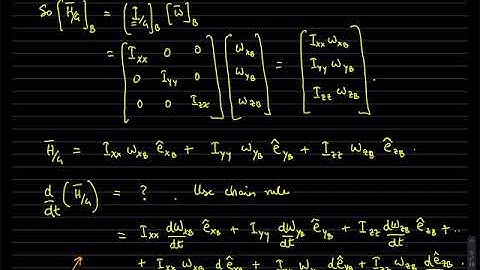 So [H̄/G]_B = [I/G]_B [ω̄]_B
= [I_xx 0 0; 0 I_yy 0; 0 0 I_zz] [ω_xB; ω_yB; ω_zB] = [I_xx ω_xB; I_yy ω_yB; I_zz ω_zB].
H̄/G = I_xx ω_xB ê_xB + I_yy ω_yB ê_yB + I_zz ω_zB ê_zB.
d/dt (H̄/G) = ? . Use chain rule
= I_xx dω_xB/dt ê_xB + I_yy dω_yB/dt ê_yB + I_zz dω_zB/dt ê_zB + ...
+ I_xx ω_xB d ê_xB + I ω d ê_yB + I ω_zB d ê_zB .